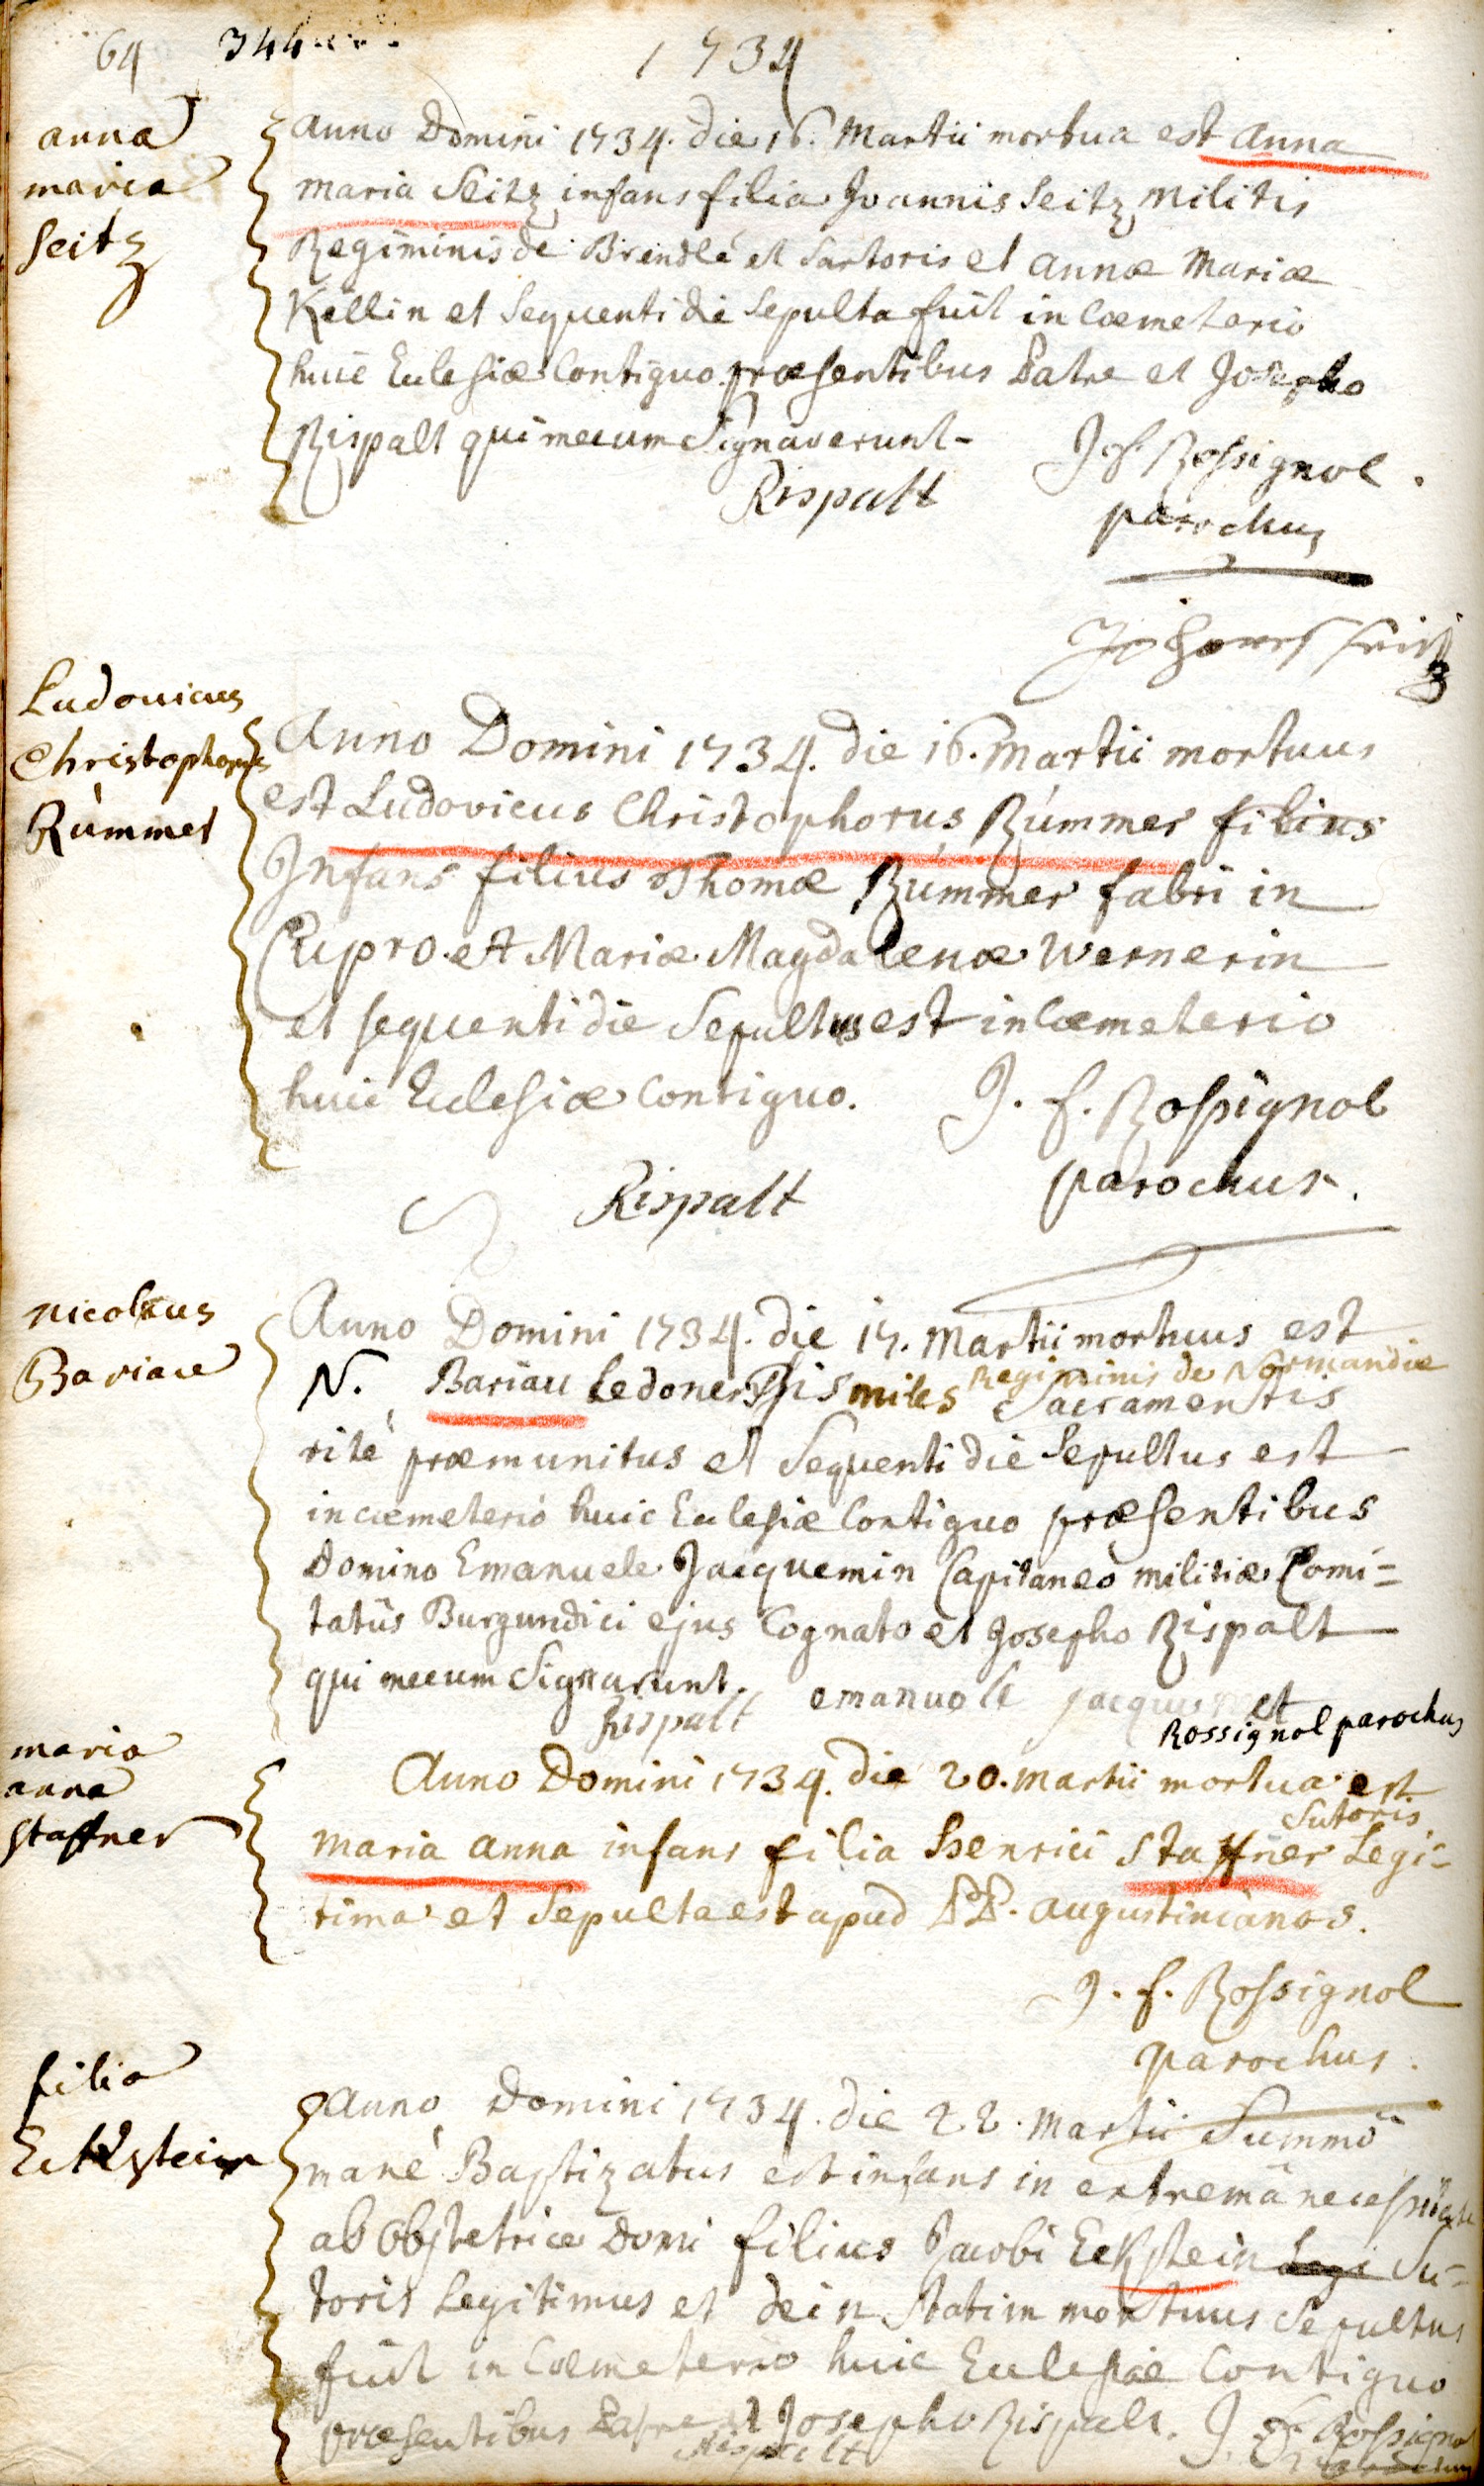 64 344
1734
anna
maria
Seitz
Anno Domini 1734. die 16. Martii mortua est Anna
Maria Seitz infans filia Joannis Seitz Militis
Regiminis de Brendlé et Sartoris et Annæ Mariæ
Kellin et Sequenti die Sepulta fuit in Cœmeterio
huic Eclesiæ Contiguo præsentibus Patre et Josepho
Rispalt qui mecum Signaverunt-
Rispalt
J. f. Rossignol.
parochus
Johannes Seitz
Ludovicus
Christophorus
Rúmmer
Anno Domini 1734. die 16. Martii mortuus
est Ludovicus Christophorus Rúmmer filius
Infans filius Thomæ Rúmmer fabri in
Cupro et Mariæ Magdalenæ Wernerin
et sequenti die Sepultus est in Cœmeterio
huic Eclesiæ Contiguo.
J. f. Rossignol
Rispalt
parochus.
nicolaus
Bariau
Anno Domini 1734. die 17. Martii mortuus est
Regiminis de Normandie
N. Bariau Ledonensis miles Sacramentis
rité præmunitus et Sequenti die Sepultus est
in cœmeterio huic Eclesiæ Contiguo præsentibus
Domino Emanuele Jacquemin Capitaneo militiæ Comi=
tatûs Burgundici ejus Cognato et Josepho Rispalt
qui mecum Signarunt.
Rispalt emanuele
et
Rossignol parochus
maria
anna
staffner
Anno Domini 1734. die 20. Martii mortua est
Sutoris
Maria Anna infans filia Henrici Staffner Legi=
tima et Sepulta est apud PP. Augustinianos.
J. f. Rossignol
parochus.
filia
Eckstein
Anno Domini 1734. die 22. Martii Summô
manè Baptizatus est infans in extremâ necessitate
ab Obstetrice Domi filius Jacobi Eckstein Legi Su=
toris Legitimus et dein Statim mortuus Sepultus
fuit in Cœmeterio huic Eclesiæ Contiguo
præsentibus Patre et Josepho Rispalt. J. f. Rossignol
Rispalt